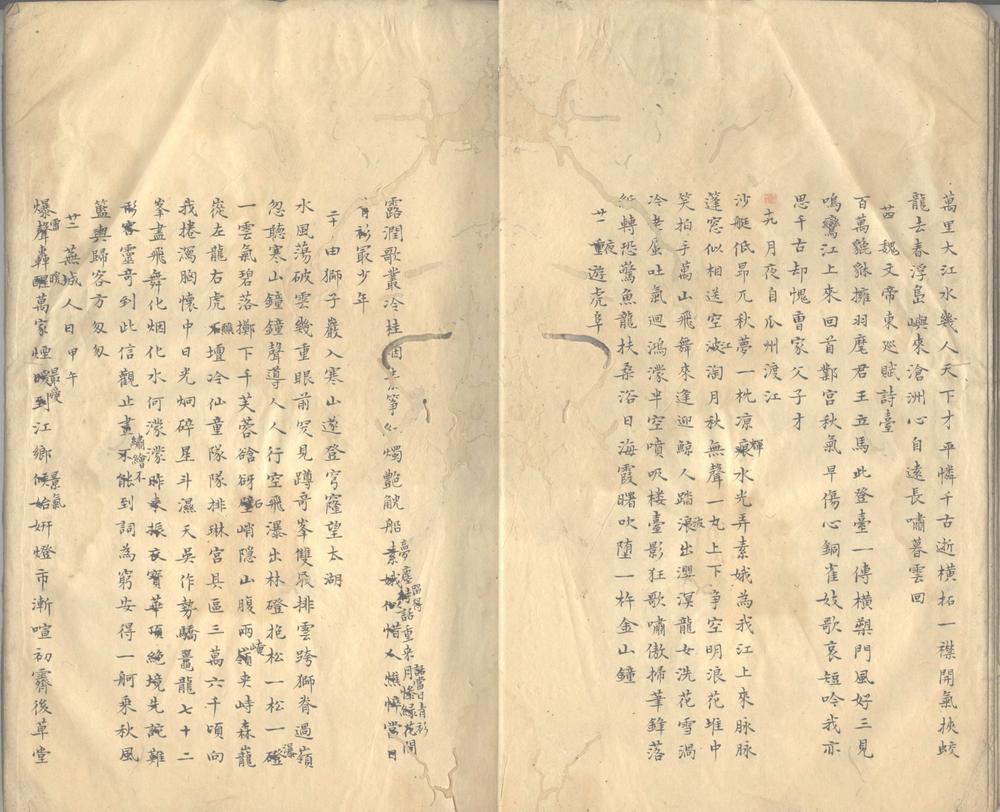 萬里大江水幾人天下才平憐千古逝橫拓一襟開氣挾蛟
龍去春浮島嶼來滄洲心自遠長嘯暮雲回
苗 魏文帝東廵賦詩臺
百萬貔貅擁羽麾君王立馬此登臺一傳橫槊門風好三見
鳴鑾江上來回首鄴宮秋氣早傷心銅雀妓歌哀短吟我亦
思千古却愧曹家父子才
九月夜自瓜州渡江
沙艇低昂兀秋夢一枕凉輝水光弄素娥為我江上來脉脉
蓬窓似相送空江淘月秋無聲一丸上下爭空明浪花堆中
笑拍手萬山飛舞來逢迎鯨人踏浪出澒溟龍女洗花雪渦
冷老蜃吐氣迴鴻濛半空噴吸楼臺影狂歌嘯傲掃筆鋒落
紙轉恐驚魚龍扶桑浴日海霞曙吹堕一杵金山鐘
廿一 夜遊虎阜
露潤歌叢冷桂 箏 燭艷觥船 惜人憔悴當日
青衫最少年
二十 由獅子巖入寒山遂登穹窿望太湖
水風蕩破雲幾重眼前突見蹲奇峯雙扆排雲跨獅脊過嶺
忽聽寒山鐘鐘聲導人人行空飛瀑出林磴抱松一松一瀑
一雲氣碧落擲下千芙蓉硲砑石峭隐山腹兩崎夾峙森龍
嵸左龍右虎壇冷仙童隊隊排琳宮具區三萬六千頃向
我捲濁胸懷中日光炯碎星斗濕天吳作勢驕鼉龍七十二
峯盡飛舞化烟化水何濛濛昨來振衣寶華頂絶境先詫難
形容靈奇到此信觀止繡繪不到詞為窮安得一舸乘秋風
籃輿歸客方匆匆
廿三 蕪城人日甲午
爆聲轟暖萬家煙 到江鄉景氣妍燈市漸喧初霽後草堂